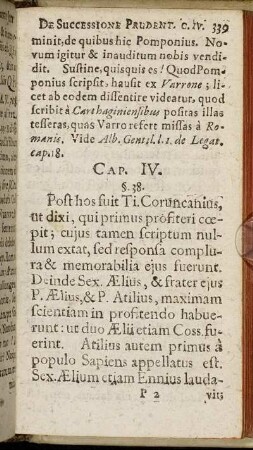 DE SUCCESSIONE PRUDENT. C. IV. 339
minit, de quibus hic Pomponius. No-
vum igitur & inauditum nobis vendi-
dit. Sustine, quisquis es! Quod Pom-
ponius scripsit, hausit ex Varrone; li-
cet ab eodem dissentire videatur, quod
scribit à Carthaginiensibus positas illas
tesseras, quas Varro refert missas à Ro-
manis. Vide Alb. Gentil. l. 1. de Legat.
cap. 18.
CAP. IV.
§. 38.
Post hos fuit Ti. Coruncanius,
ut dixi, qui primus profiteri cœ-
pit; cujus tamen scriptum nul-
lum extat, sed responsa complu-
ra & memorabilia ejus fuerunt.
Deinde Sex. Ælius, & frater ejus
P. Ælius, & P. Atilius, maximam
scientiam in profitendo habue-
runt: ut duo Ælii etiam Coss. fu-
erint. Atilius autem primus à
populo Sapiens appellatus est.
Sex. Ælium etiam Ennius lauda-
P 2 vit;